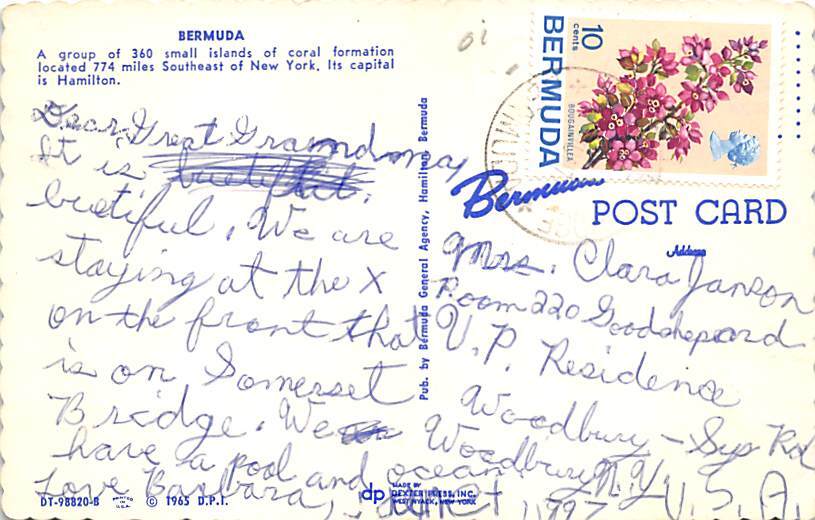 BERMUDA
A group of 360 small islands of coral formation
located 774 miles Southeast of New York. Its capital
is Hamilton.
Dear Great Grandmay
It is
buetiful. We are
staying at the X
on the front that
is on Somerset
Bridge. We
have a pool and ocean.
Love Barbara,
DT-98820-B
PRINTED IN U.S.A.
© 1965 D.P.I.
Pub. by Bermuda General Agency, Hamilton, Bermuda
dp
MADE BY
DEXTER PRESS, INC.
WEST NYACK, NEW YORK
10 cents
BERMUDA
BOUGAINVILLEA
Bermuda
POST CARD
Address
Mrs. Clara Janson
Room 220 Goodshepard
U.P. Residence
Woodbury - Sys Rd
Woodbury N.Y.
U.S.A.